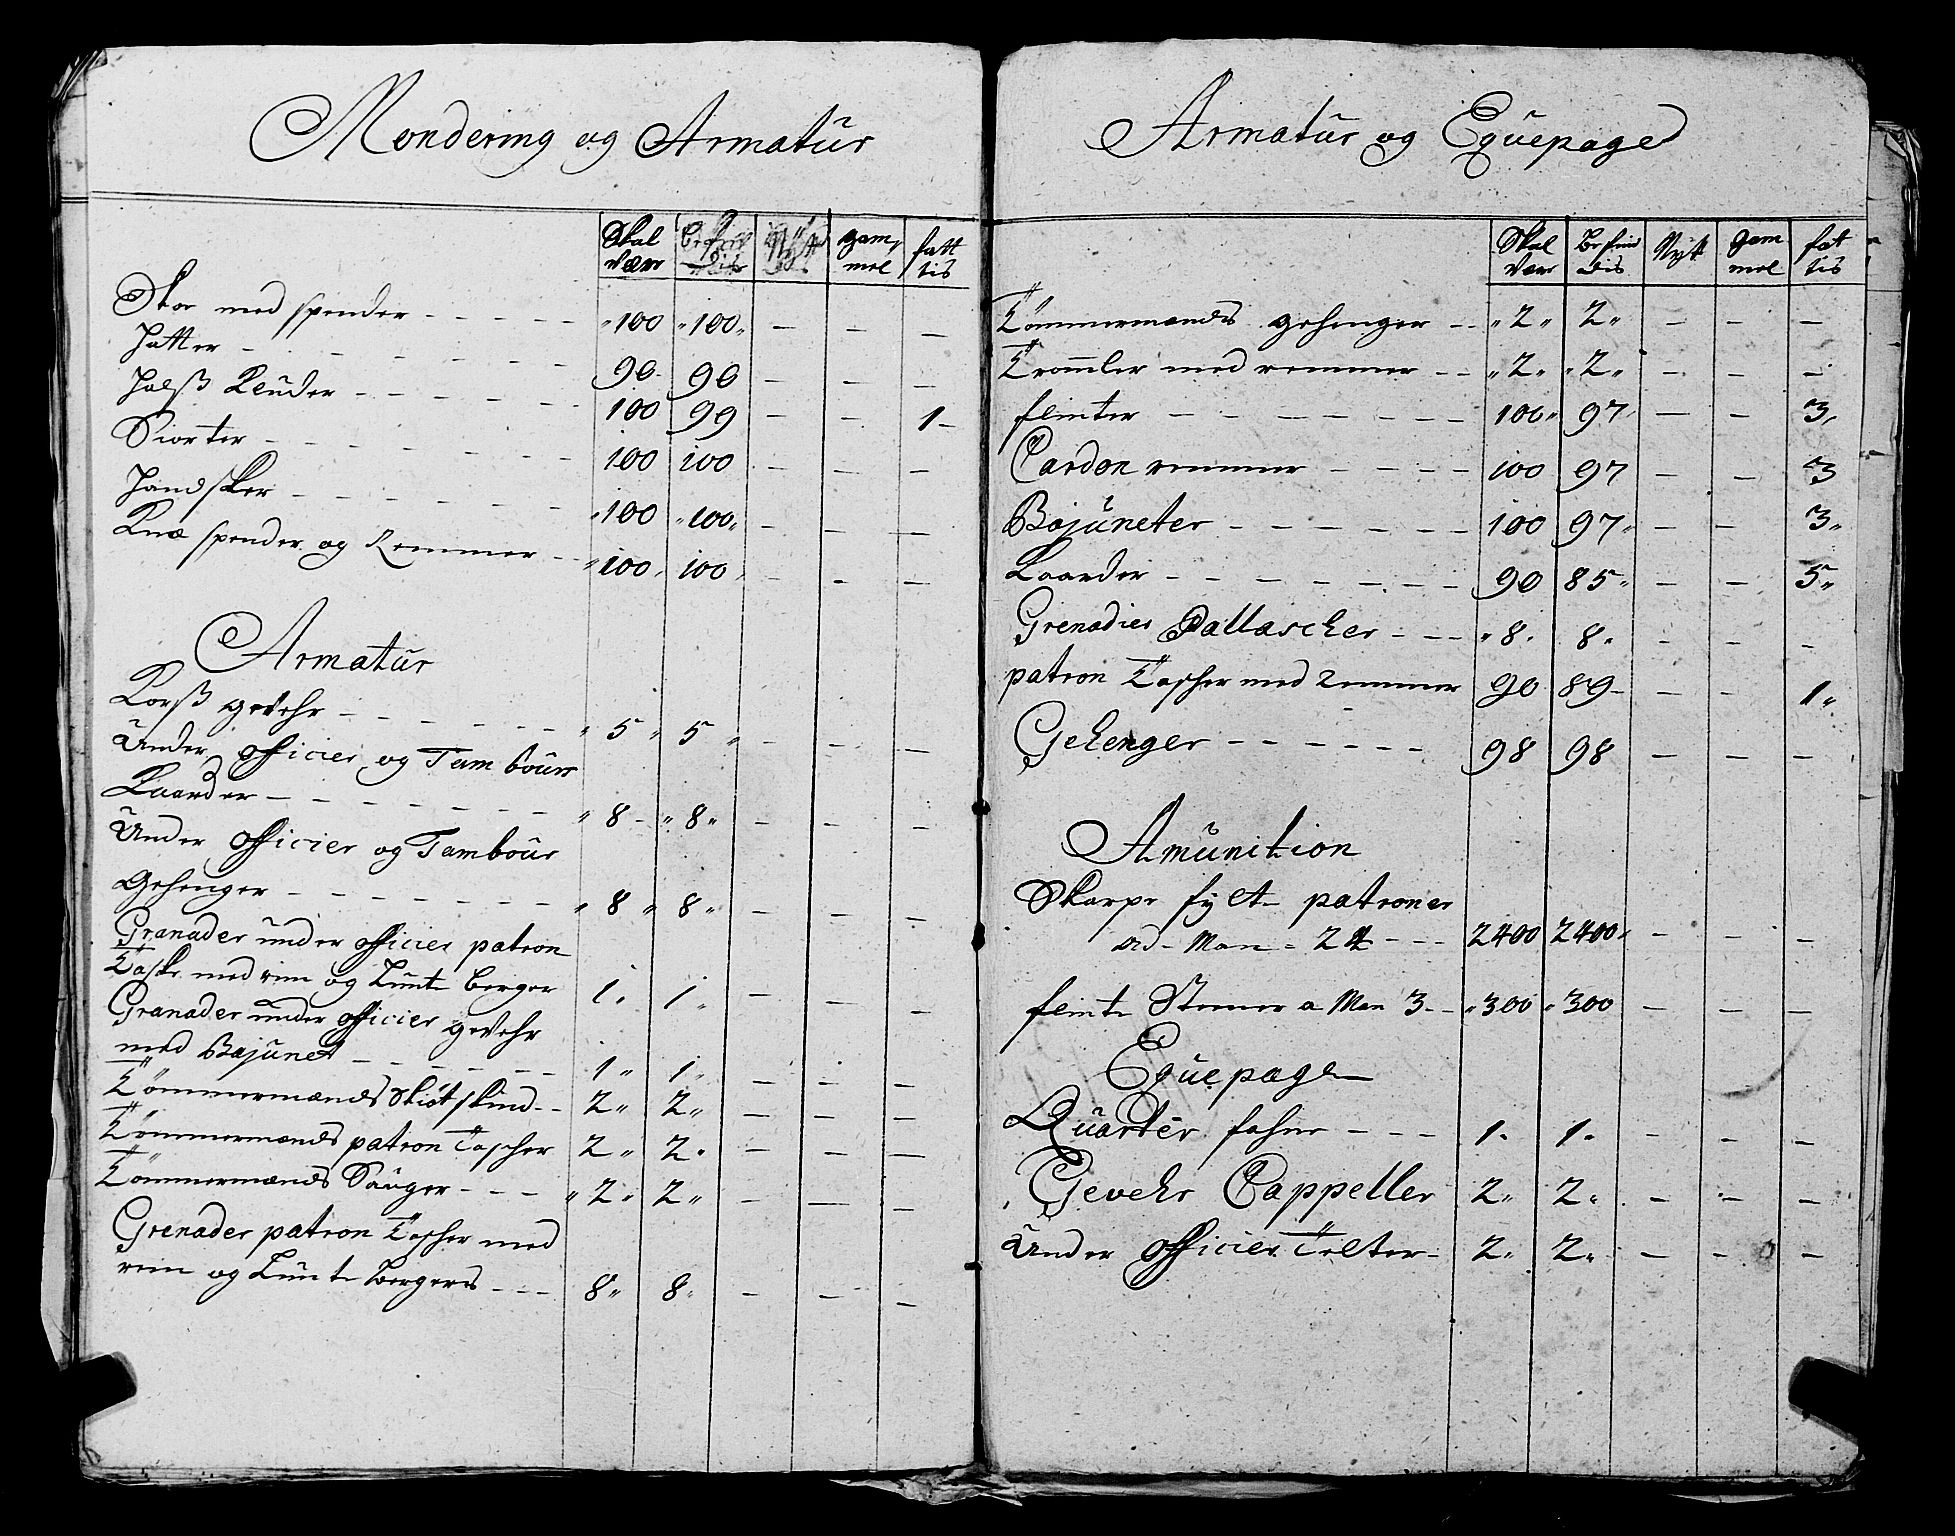 Mondering og Armatur
Skal være | befin dis | Nytt | gam mel | fatt tis
Skoe med spender - - - - - " 100 " 100 " - - -
Hatter - - - - - - 90 - 90 - - -
Halsß Kluder - - - - - 100 99 - - 1 -
Siorter - - - - - - 100 100 - - -
Handsker - - - - - - " 100 " 100 " - - -
Knæ spender og Remmer - - " 100 " 100 " - - -
Armatur
Korß gevehr - - - - - " 5 " 5 " - - -
Under officier og Tambours
Kaarder - - - - - - " 8 - " 8 " - - -
Under officier og Tambour
Gehenger - - - - - - " 8 " 8 " - - -
Granader under officier patron
Taske med rim og Lunte berger 1 " 1 " - - -
Granader under officier gevehr
med Bajunet - - - - - 1 " 1 " - - -
Tömmermænds Skiötskind - - 2 " 2 " - - -
Tömmermænds patron Tasher 2 " 2 " - - -
Tömmermænds Sauger - - - " 2 " 2 " - - -
Grenader patron Tasher med
rim og Lunte bergers - - - 8 " 8 " - - -
Armatur og Equepage
Skal være | Befin dis | Nytt | gam mel | fat tis
Tömmermænds gehenger - - " 2 " 2 " - - -
Tromler med remmer - - " 2 " " 2 " - - -
flinter - - - - - - - 100 " 97 " - - 3 "
Cardon remmer - - - - 100 97 - - 3
Bajuneter - - - - - - 100 97 " - - 3 "
Kaarder - - - - - - - 90 85 " - - 5 "
Grenadier Pallascher - - - " 8 " 8 " - - -
patron Tasher med Remmer 90 89 - - - 1 "
Gehenger - - - - - - 98 98 - - -
Amunition
Skarpe fylte patroner
ad - Man - 24 - - - 2400 2400 " - - -
flinte Steener a Man 3 - - " 300 " 300 - - -
Equepage
Quarter fahne - - - 1 " 1 " - - -
Gevehr Cappeller 2 " 2 " - - -
Under officier Telter - 2 " 2 " - - -